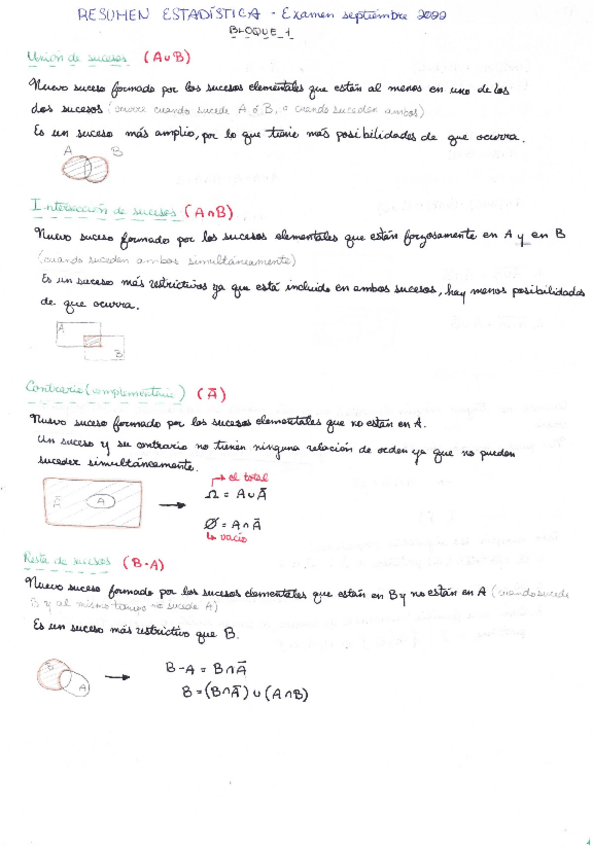 RESUMEN ESTADÍSTICA - Examen septiembre 2022
BLOQUE 1
Unión de sucesos (A∪B)
Nuevo suceso formado por los sucesos elementales que están al menos en uno de los
dos sucesos (ocurre cuando sucede A ó B, o cuando suceden ambos)
Es un suceso más amplio, por lo que tiene más posibilidades de que ocurra.
A B
Intersección de sucesos (A∩B)
Nuevo suceso formado por los sucesos elementales que están forzosamente en A y en B
(cuando suceden ambos simultáneamente)
Es un suceso más restrictivos ya que está incluido en ambos sucesos, hay menos posibilidades
de que ocurra.
A
B
Contrario (complementario) (Ā)
Nuevo suceso formado por los sucesos elementales que no están en A.
Un suceso y su contrario no tienen ninguna relación de orden ya que no pueden
suceder simultáneamente.
↱ el total
Ā A → Ω = A∪Ā
Ø = A∩Ā
↳ vacío
Resta de sucesos (B-A)
Nuevo suceso formado por los sucesos elementales que están en B y no están en A (cuando sucede
B y al mismo tiempo no sucede A)
Es un suceso más restrictivo que B.
B A → B-A = B∩Ā
B = (B∩Ā) ∪ (A∩B)
1